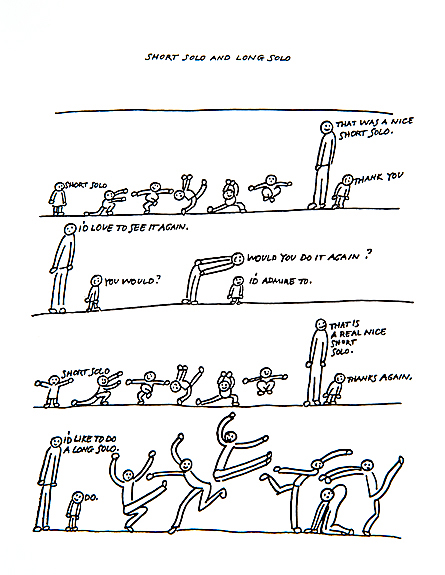 SHORT SOLO AND LONG SOLO
SHORT SOLO
THAT WAS A NICE
SHORT SOLO.
THANK YOU
I'D LOVE TO SEE IT AGAIN.
YOU WOULD?
WOULD YOU DO IT AGAIN ?
I'D ADMIRE TO.
SHORT SOLO
THAT IS
A REAL NICE
SHORT
SOLO.
THANKS AGAIN.
I'D LIKE TO DO
A LONG SOLO.
DO.